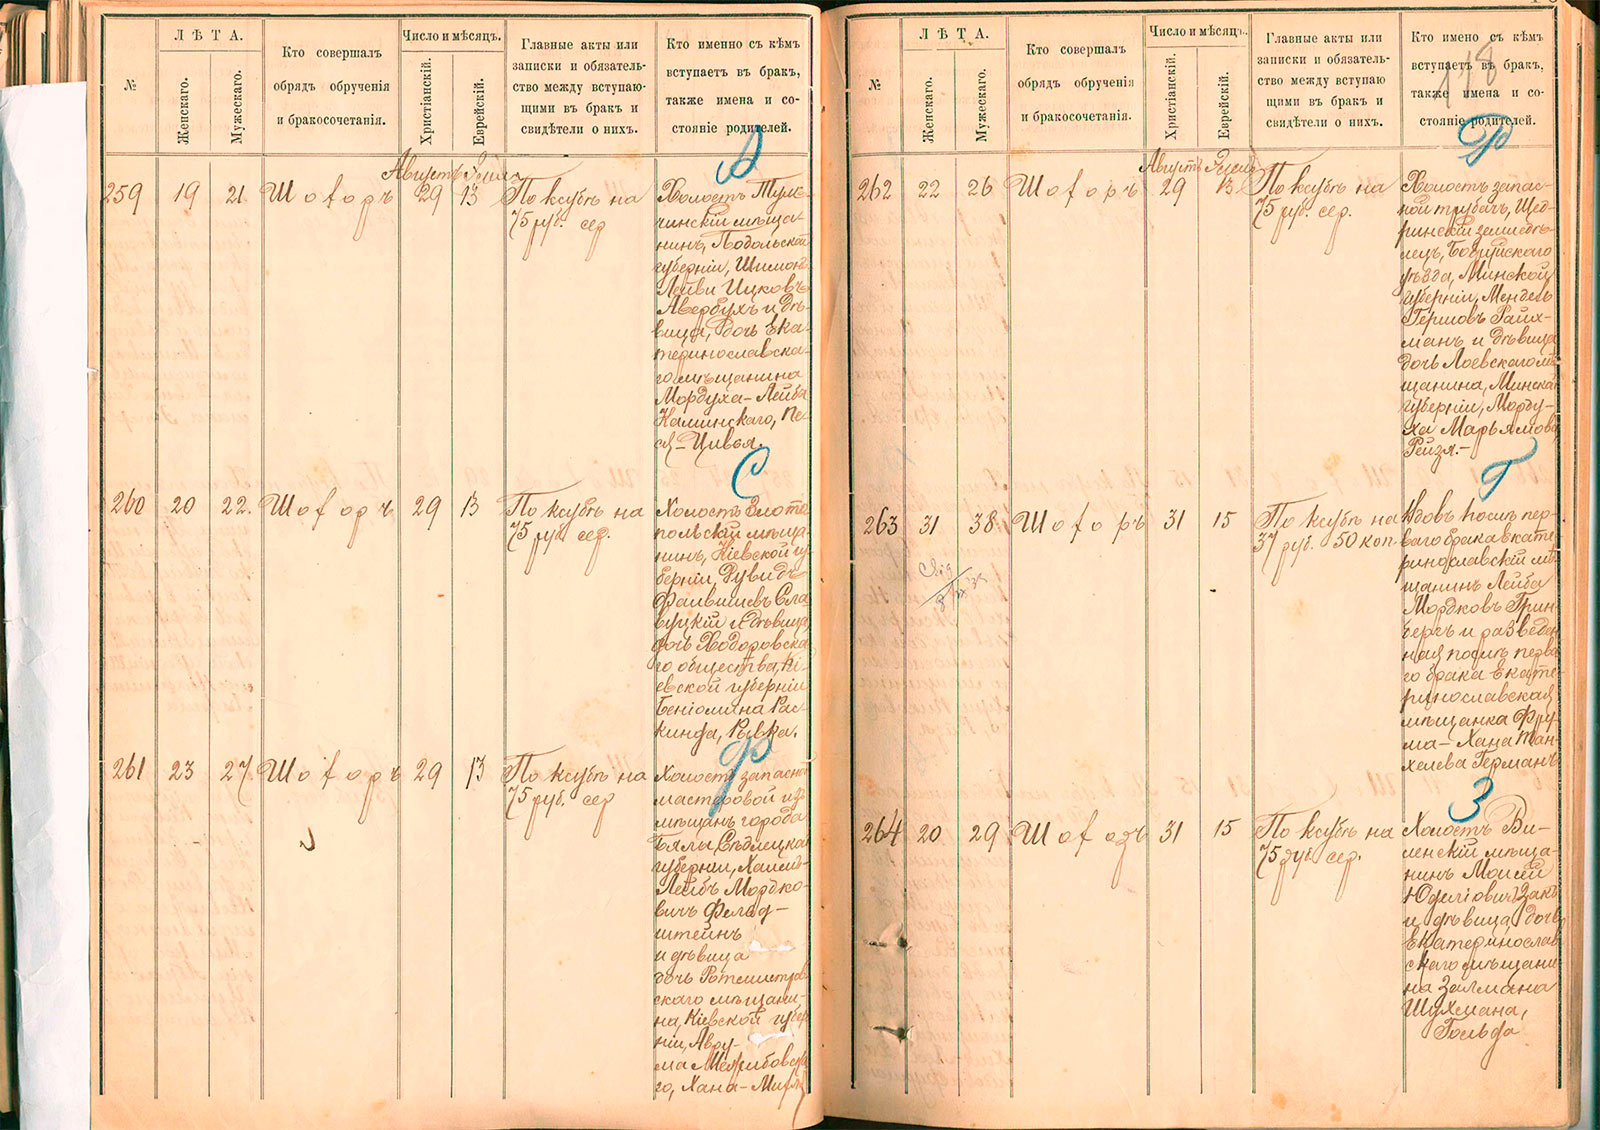 Л Ѣ Т А.
№
Женскаго.
Мужескаго.
Кто совершалъ
обрядъ обрученія
и бракосочетанія.
Число и мѣсяцъ.
Христіанскій.
Еврейскій.
Главные акты или
записки и обязатель-
ство между вступаю-
щими въ бракъ и
свидѣтели о нихъ.
Кто именно съ кѣмъ
вступаетъ въ бракъ,
также имена и со-
стояніе родителей.
Августъ
259 19 21 Шофоръ 29 13
По ксубѣ на
75 руб. сер
Холостъ Туль-
чинскій мѣща-
нинъ, Подольской
губерніи, Шимонъ
Лейви Ицковъ
Авербухъ и дѣ-
вица, дочь Ека-
теринославска-
го мѣщанина
Мордуха-Лейба
Каминскаго, Пе-
ся-Цивья.
С
260 20 22. Шофоръ 29 13
По ксубѣ на
75 руб сер.
Холостъ Злото
польскій мѣща-
нинъ, Кіевской гу-
берніи, Дувидъ
Файвишевъ Сла
вуцкій и дѣвица
дочь Ходоровска-
го общества, Кі-
евской губерніи
Беніомина Рас-
кинда, Рывка.
Ф
261 23 27 Шофоръ 29 13
По ксубѣ на
75 руб. сер
Холостъ запасной
мастеровой изъ
мѣщанъ города
Бялы, Сѣдлецкой
губерніи, Хаимъ-
Лейбъ Мордко-
вичъ Фельд-
штейнъ
и дѣвица
дочь Ротмистров
скаго мѣщани-
на, Кіевской губер
ніи, Авру-
ма Межибовска
го, Хана-
Л Ѣ Т А.
№
Женскаго.
Мужескаго.
Кто совершалъ
обрядъ обрученія
и бракосочетанія.
Число и мѣсяцъ.
Христіанскій.
Еврейскій.
Главные акты или
записки и обязатель-
ство между вступаю
щими въ бракъ и
свидѣтели о нихъ.
Кто имено съ кѣмъ
вступаетъ въ бракъ,
также имена и со-
стояніе родителей.
118
Р
Августъ
262 22 26 Шофоръ 29 13
По ксубѣ на
75 руб. сер.
Холостъ запас-
ной трубачъ, Щед-
ринскій землedѣ-
лецъ, Бобруйскаго
уѣзда, Минской
губерніи, Мендель
Гершовъ Райх-
манъ и дѣвица
дочь Лоевскаго мѣ
щанина, Минской
губерніи, Морду-
ха Марьямова,
Рейзя.-
Г
263 31 38 Шофоръ 31 15
По ксубѣ на
37 руб. 50 коп-
Вдовъ послѣ пер-
ваго брака екате-
ринославскій мѣ
щанинъ Лейба
Мордковъ Грин-
бергъ и разведен
ная послѣ перва
го брака Екате-
ринославская
мѣщанка Фру-
ма-Хана Тан-
хелева Германъ
З
264 20 29 Шофоръ 31 15
По ксубѣ на
75 руб. сер.
Холостъ Ви-
ленскій мѣща-
нинъ Моисей
Закъ
и дѣвица, дочь
Екатеринослав
скаго мѣщани
на Залмана
Шухмана,
Гольда